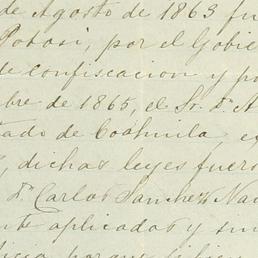 de Agosto de 1863 fu
Potosi, por el Gobie
de confiscacion y po
bre de 1865, el Sr. Dn. A
tado de Coahuila, e
, dichas leyes fuero
Dn. Carlos Sanchez Na
nte aplicadas y sin
ticia, porque